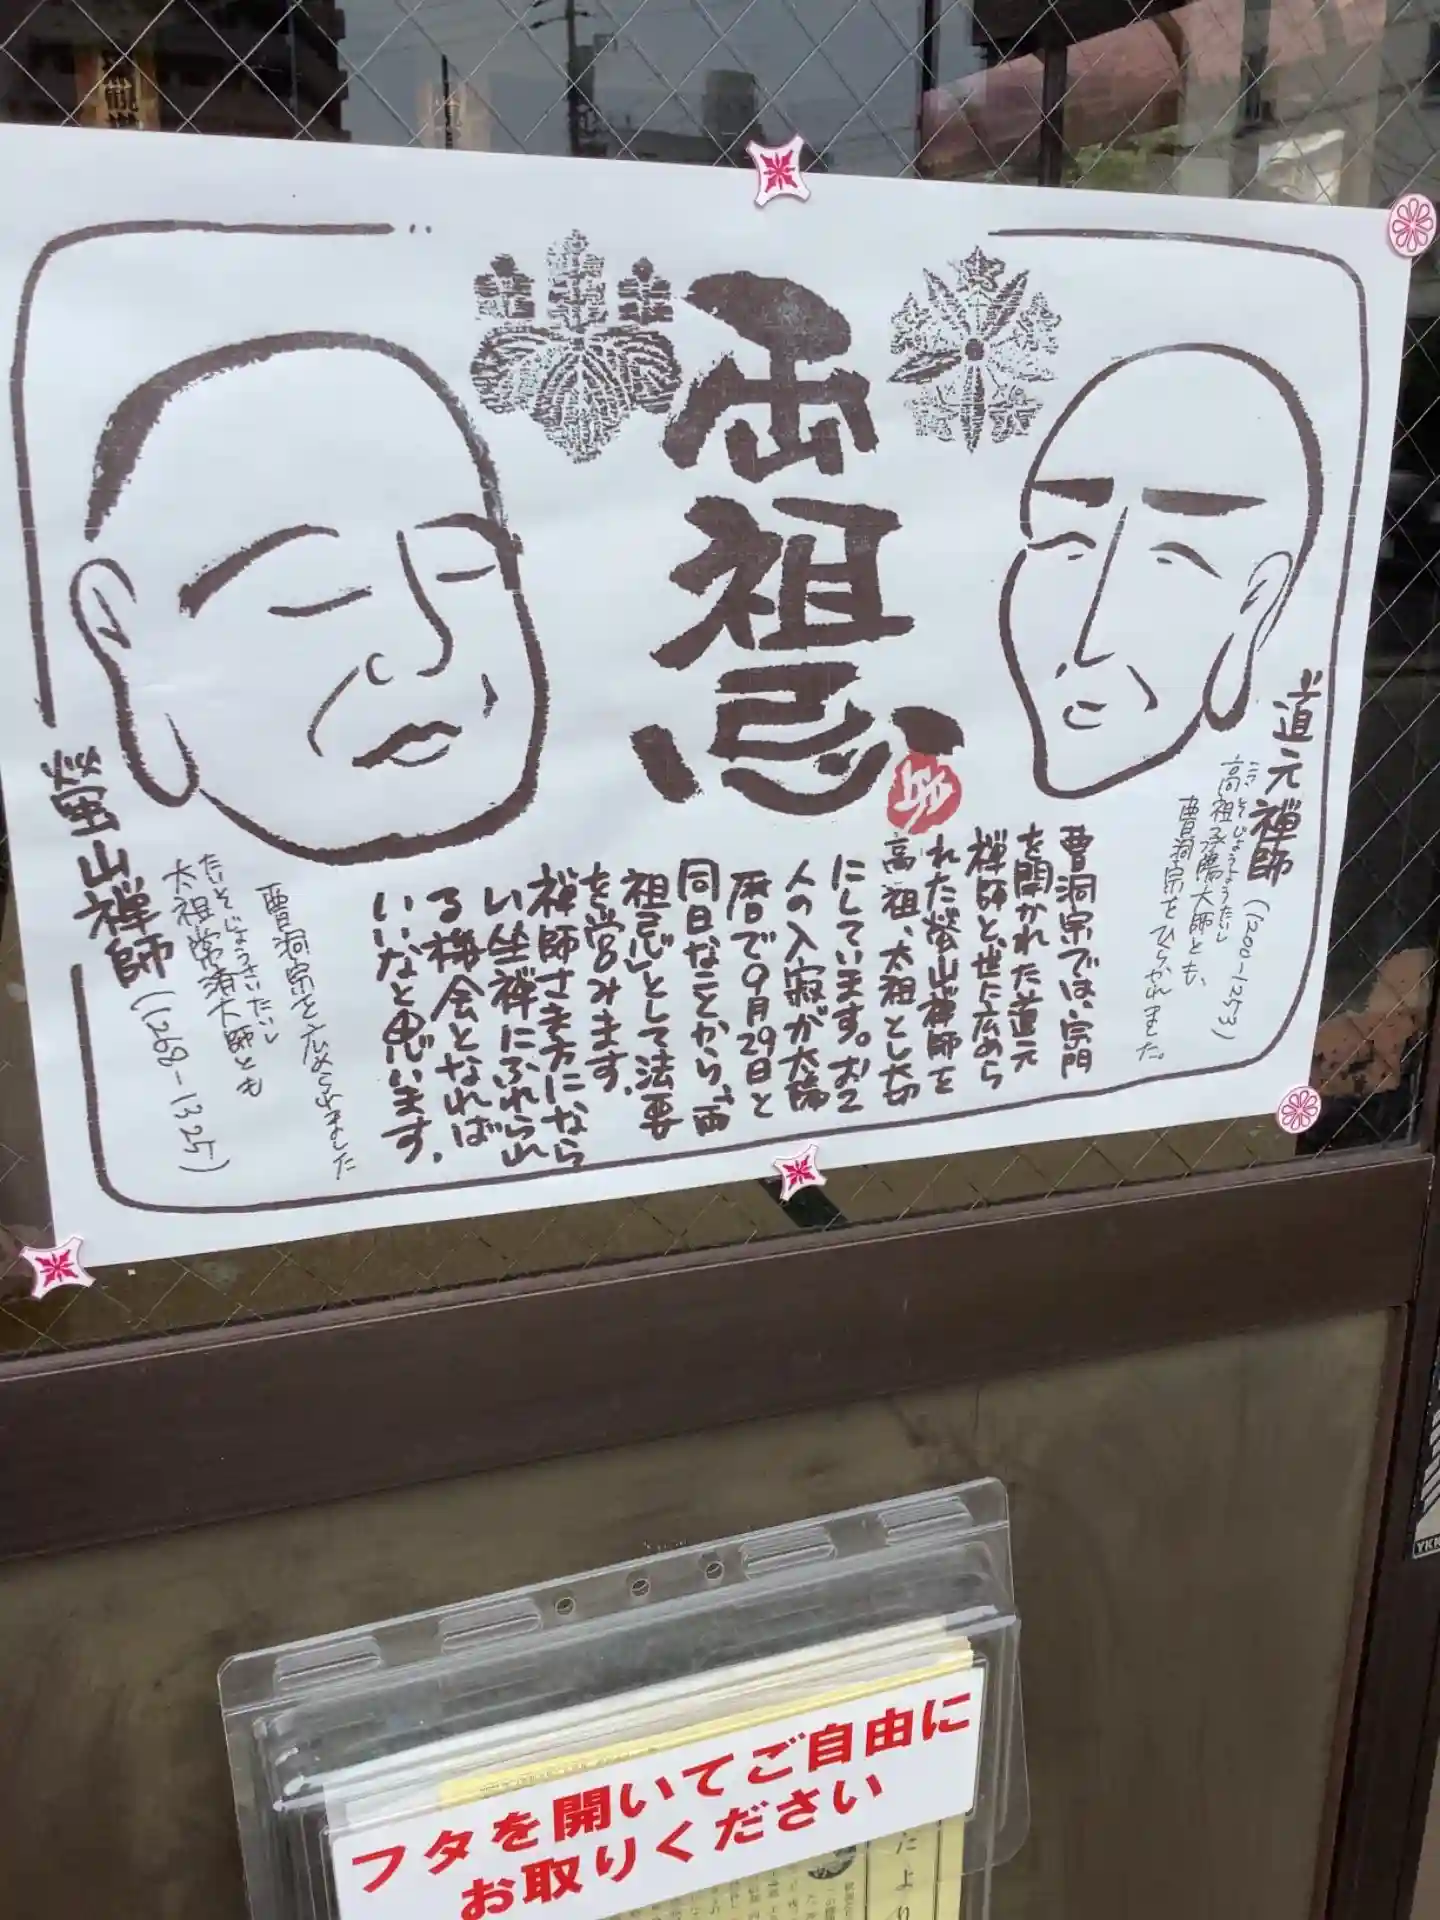 両祖忌
道元禅師(1200-1253)
こうそじょうようだいし
高祖承陽大師とも、
曹洞宗をひらかれました。
曹洞宗では、宗門
を開かれた道元
禅師と、世に広めら
れた瑩山禅師を
高祖、太祖とし大切
にしています。お2
人の入寂が太陽
暦で9月29日と
同日なことから、「両
祖忌」として法要
を営みます。
禅師さま方になら
い坐禅にふれられ
る機会となれば
いいなと思います。
瑩山禅師(1268-1325)
たいそじょうさいだいし
太祖常済大師とも
曹洞宗を広められました
フタを開いてご自由に
お取りください
たより
YKK